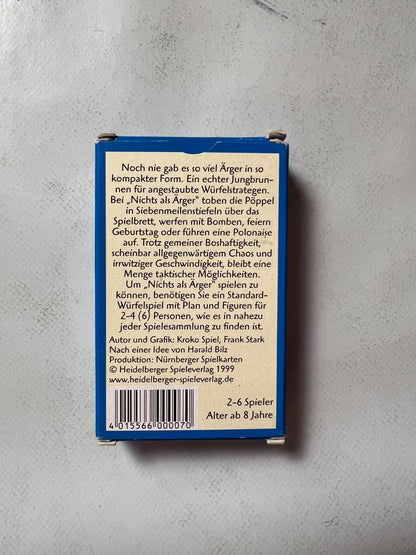 Noch nie gab es so viel Ärger in so
kompakter Form. Ein echter Jungbrun-
nen für angestaubte Würfelstrategen.
Bei „Nichts als Ärger" toben die Pöppel
in Siebenmeilenstiefeln über das
Spielbrett, werfen mit Bomben, feiern
Geburtstag oder führen eine Polonaise
auf. Trotz gemeiner Boshaftigkeit,
scheinbar allgegenwärtigem Chaos und
irrwitziger Geschwindigkeit, bleibt eine
Menge taktischer Möglichkeiten.
Um „Nichts als Ärger" spielen zu
können, benötigen Sie ein Standard-
Würfelspiel mit Plan und Figuren für
2-4 (6) Personen, wie es in nahezu
jeder Spielesammlung zu finden ist.
Autor und Grafik: Kroko Spiel, Frank Stark
Nach einer Idee von Harald Bilz
Produktion: Nürnberger Spielkarten
© Heidelberger Spieleverlag 1999
www.heidelberger-spieleverlag.de
2-6 Spieler
Alter ab 8 Jahre
4 015566 000070